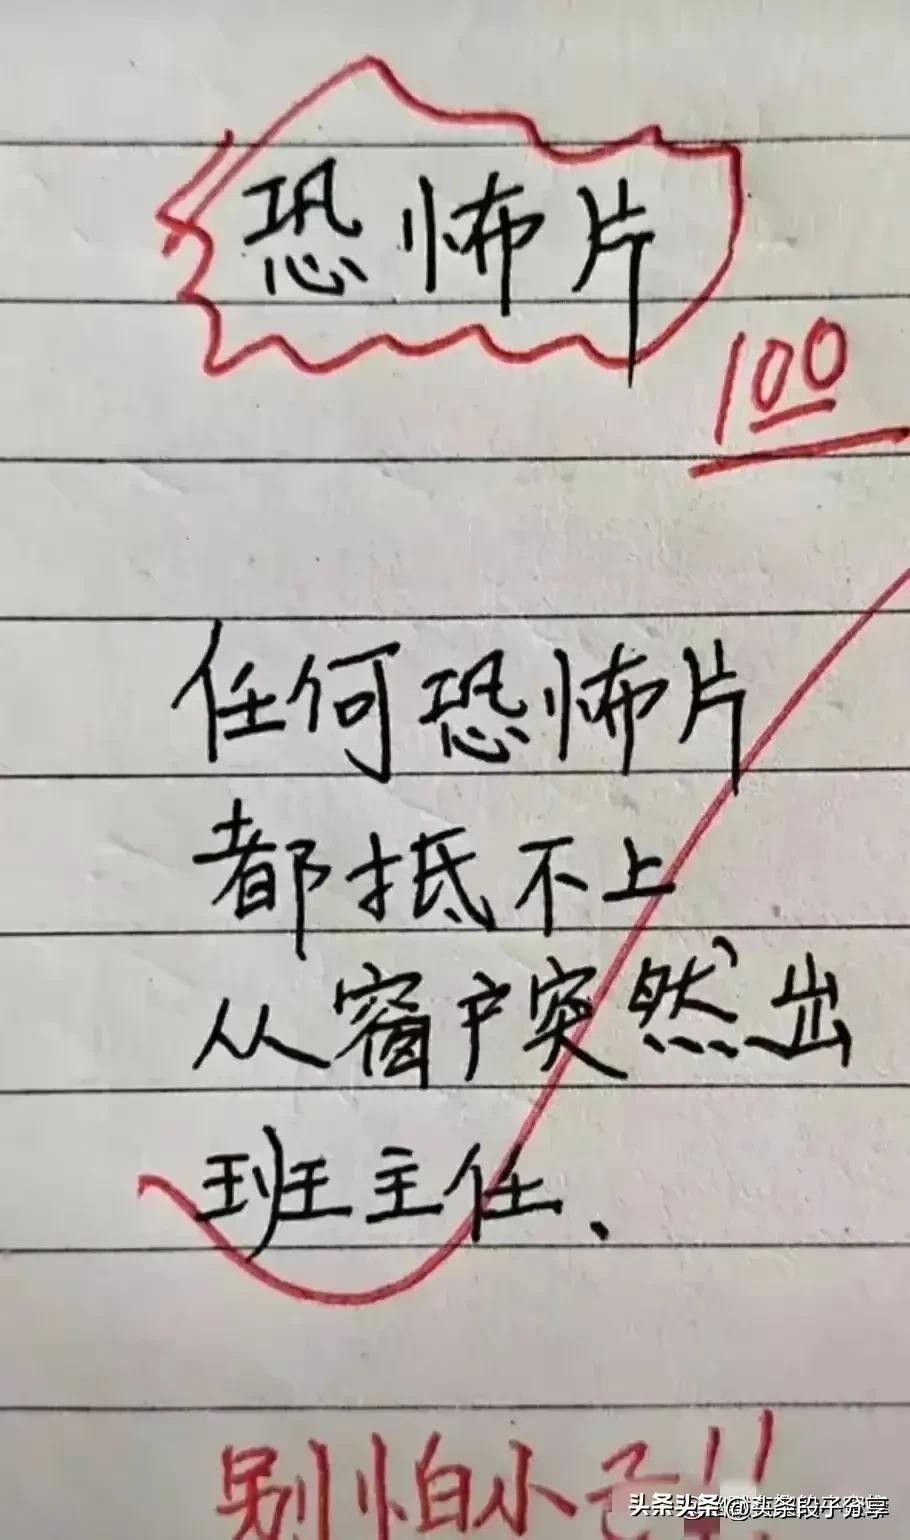 恐怖片
100
任何恐怖片
都抵不上
从窗户突然出
班主任、
别怕小子!!
头条头条@头条段子分享